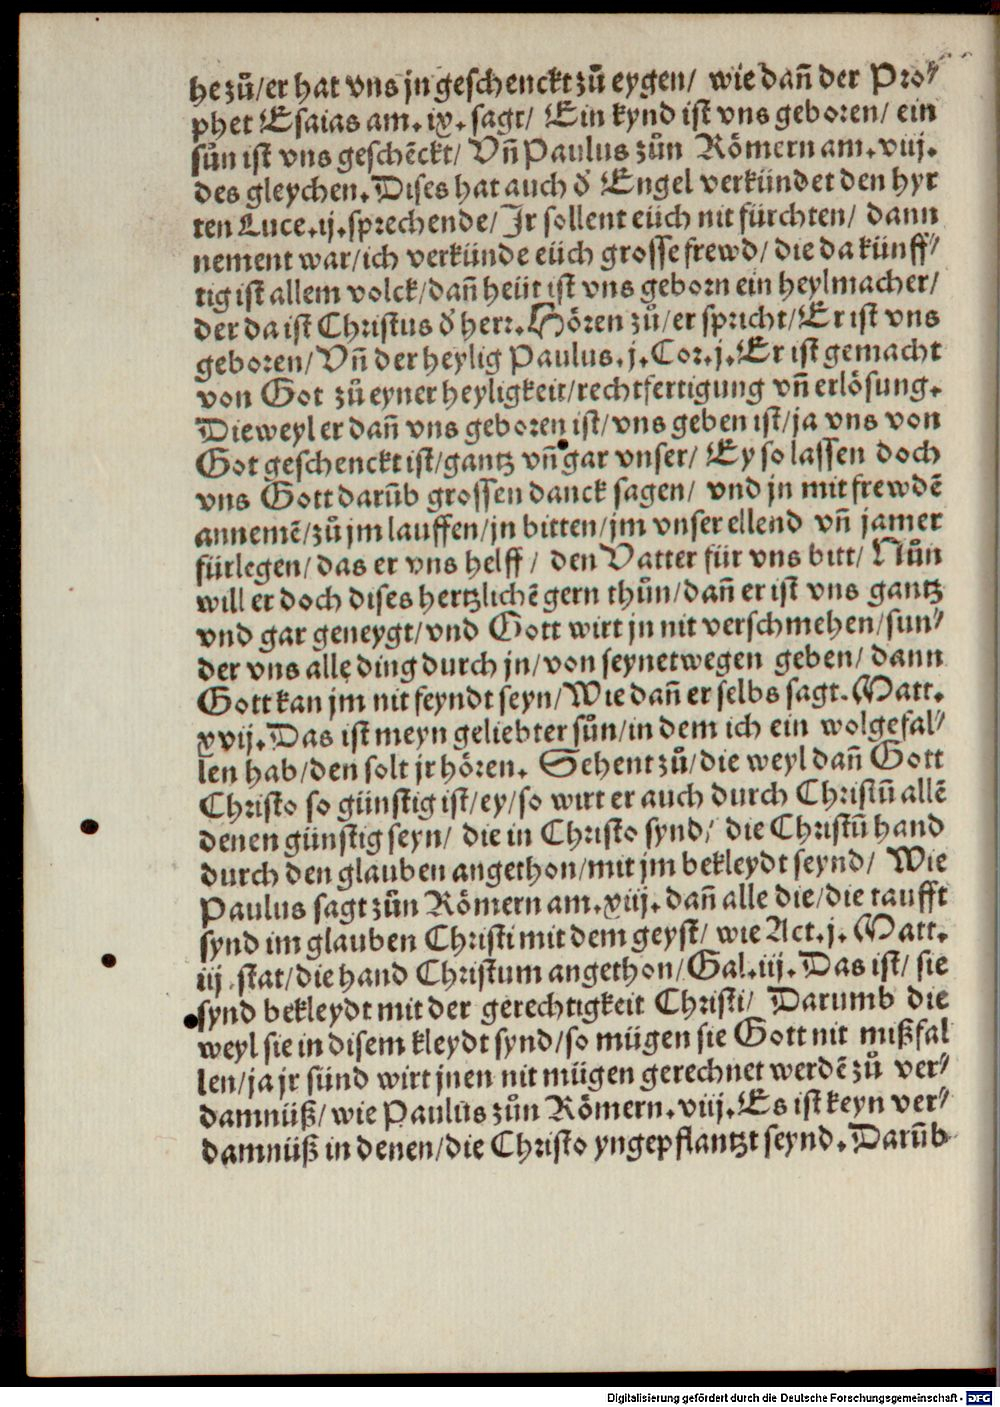 he zů/er hat vns jn geschenckt zů eygen/ wie dañ der Pro⸗
phet Esaias am. ix. sagt/ Ein kynd ist vns geboren/ ein
sůn ist vns geschēckt/ Vñ Paulus zůn Römern am. viij.
des gleychen. Dises hat auch d̕ Engel verkündet den hyr
ten Luce. ij. sprechende/ Jr sollent eüch nit fürchten/ dann
nement war/ich verkünde eüch grosse frewd/ die da künff⸗
tig ist allem volck/dañ heüt ist vns geborn ein heylmacher/
der da ist Christus d̕ herr. Hören zů/er spricht/Er ist vns
geboren/ Vñ der heylig Paulus. j. Cor. j. Er ist gemacht
von Got zů eyner heyligkeit/rechtfertigung vñ erlösung.
Dieweyl er dañ vns geboren ist/vns geben ist/ja vns von
Got geschenckt ist/gantz vñ gar vnser/ Ey so lassen doch
vns Gott darūb grossen danck sagen/ vnd jn mit frewdē
annemē/zů jm lauffen/jn bitten/jm vnser ellend vñ jamer
fürlegen/das er vns helff/ den Vatter für vns bitt/ Nůn
will er doch dises hertzlichē gern thůn/dañ er ist vns gantz
vnd gar geneygt/vnd Gott wirt jn nit verschmehen/sun⸗
der vns alle ding durch jn/von seynetwegen geben/ dann
Gott kan jm nit feyndt seyn/Wie dañ er selbs sagt. Matt.
xvij. Das ist meyn geliebter sůn/in dem ich ein wolgefal⸗
len hab/den solt jr hören. Sehent zů/die weyl dañ Gott
Christo so günstig ist/ey/so wirt er auch durch Christū allē
denen günstig seyn/ die in Christo synd/ die Christū hand
durch den glauben angethon/mit jm bekleydt seynd/ Wie
Paulus sagt zůn Römern am. xiij. dañ alle die/die taufft
synd im glauben Christi mit dem geyst/ wie Act. j. Matt.
iij. stat/die hand Christum angethon/Gal. iij. Das ist/ sie
synd bekleydt mit der gerechtigkeit Christi/ Darumb die
weyl sie in disem kleydt synd/so mügen sie Gott nit mißfal
len/ja jr sünd wirt jnen nit mügen gerechnet werdē zů ver⸗
damnüß/wie Paulus zůn Römern. viij. Es ist keyn ver⸗
damnüß in denen/die Christo yngepflantzt seynd. Darūb
Digitalisierung gefördert durch die Deutsche Forschungsgemeinschaft - DFG